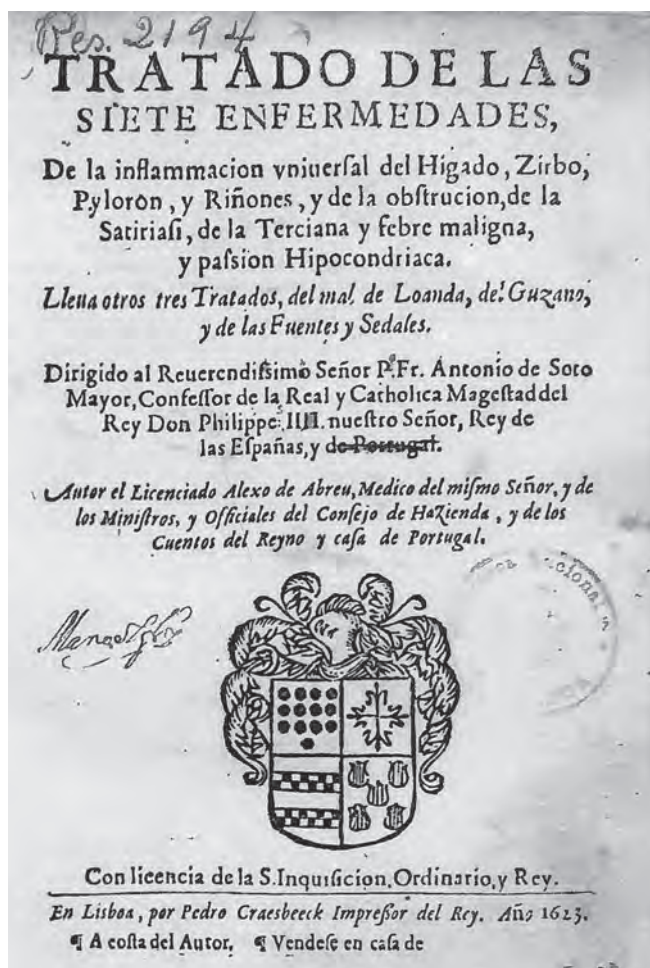 Res. 2194
TRATADO DE LAS
SIETE ENFERMEDADES,
De la inflammacion vniuerſal del Higado, Zirbo,
Pyloron, y Riñones, y de la obſtrucion, de la
Satiriaſi, de la Terciana y febre maligna,
y paſsion Hipocondriaca.
Lleua otros tres Tratados, del mal de Loanda, del Guzano,
y de las Fuentes y Sedales.
Dirigido al Reuerendiſsimo Señor P.Fr. Antonio de Soto
Mayor, Confeſſor de la Real y Catholica Mageſtad del
Rey Don Philippe. IIII. nueſtro Señor, Rey de
las Eſpañas, y de Portugal.
Autor el Licenciado Alexo de Abreu, Medico del miſmo Señor, y de
los Miniſtros, y Officiales del Conſejo de Hazienda, y de los
Cuentos del Reyno y caſa de Portugal.
Con licencia de la S. Inquiſicion, Ordinario, y Rey.
En Lisboa, por Pedro Craesbeeck Impreſſor del Rey. Año 1623.
¶ A coſta del Autor. ¶ Vendeſe en caſa de